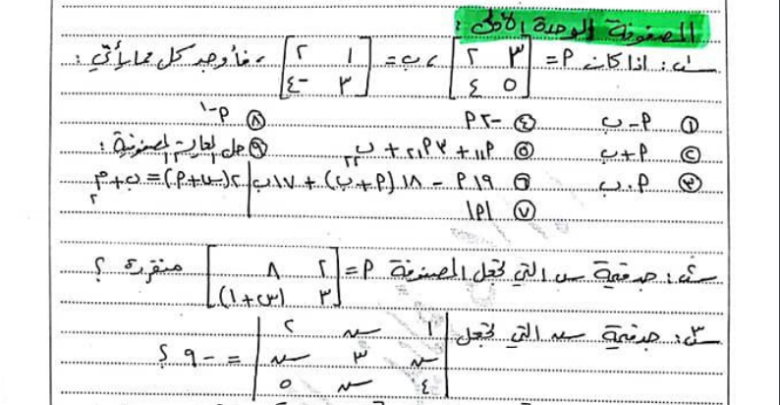 المصفوفة الوحدة الأولى :
س١: إذا كان P = [ ٣ ٢ ; ٥ ٤ ] ، ب = [ ١ ٢ ; ٣ -٤ ] ، فأوجد كل مما يأتي :
① P - ب ④ -٢P ⑧ P^-١
② P + ب ⑤ P١١ + ٣P٢١ + ب٢٢ ⑨ حل المعادلة المصفوفية :
③ P . ب ⑥ ١٩P - ١٨(P + ب) + ١٧ب ٢(س + P) = ب + م٢
⑦ |P|
س٢: جد قيمة س التي تجعل المصفوفة P = [ ٢ ٨ ; ٣ (س+١) ] منفردة ؟
س٣: جد قيمة س التي تجعل | ١ س ٢ ; س ٣ س ; ٤ س ٥ | = -٩ ؟